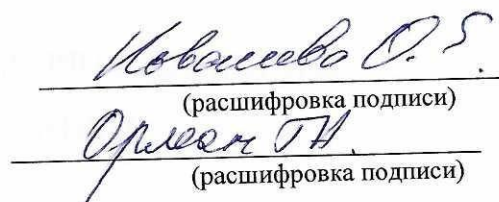 Ковалева О.
(расшифровка подписи)
Орлеан Т.Н.
(расшифровка подписи)